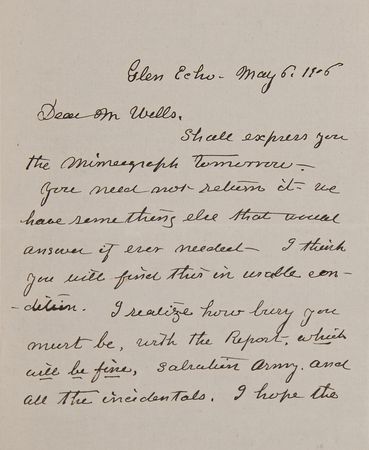 Glen Echo - May 6. 1906
Dear Mr Wells.
Shall express you
the Mimeograph tomorrow -
You need not return it - we
have something else that would
answer if ever needed - I think
you will find this in usable con-
-dition. I realize how busy you
must be, with the Report, which
will be fine, Salvation Army. and
all the incidentals. I hope the